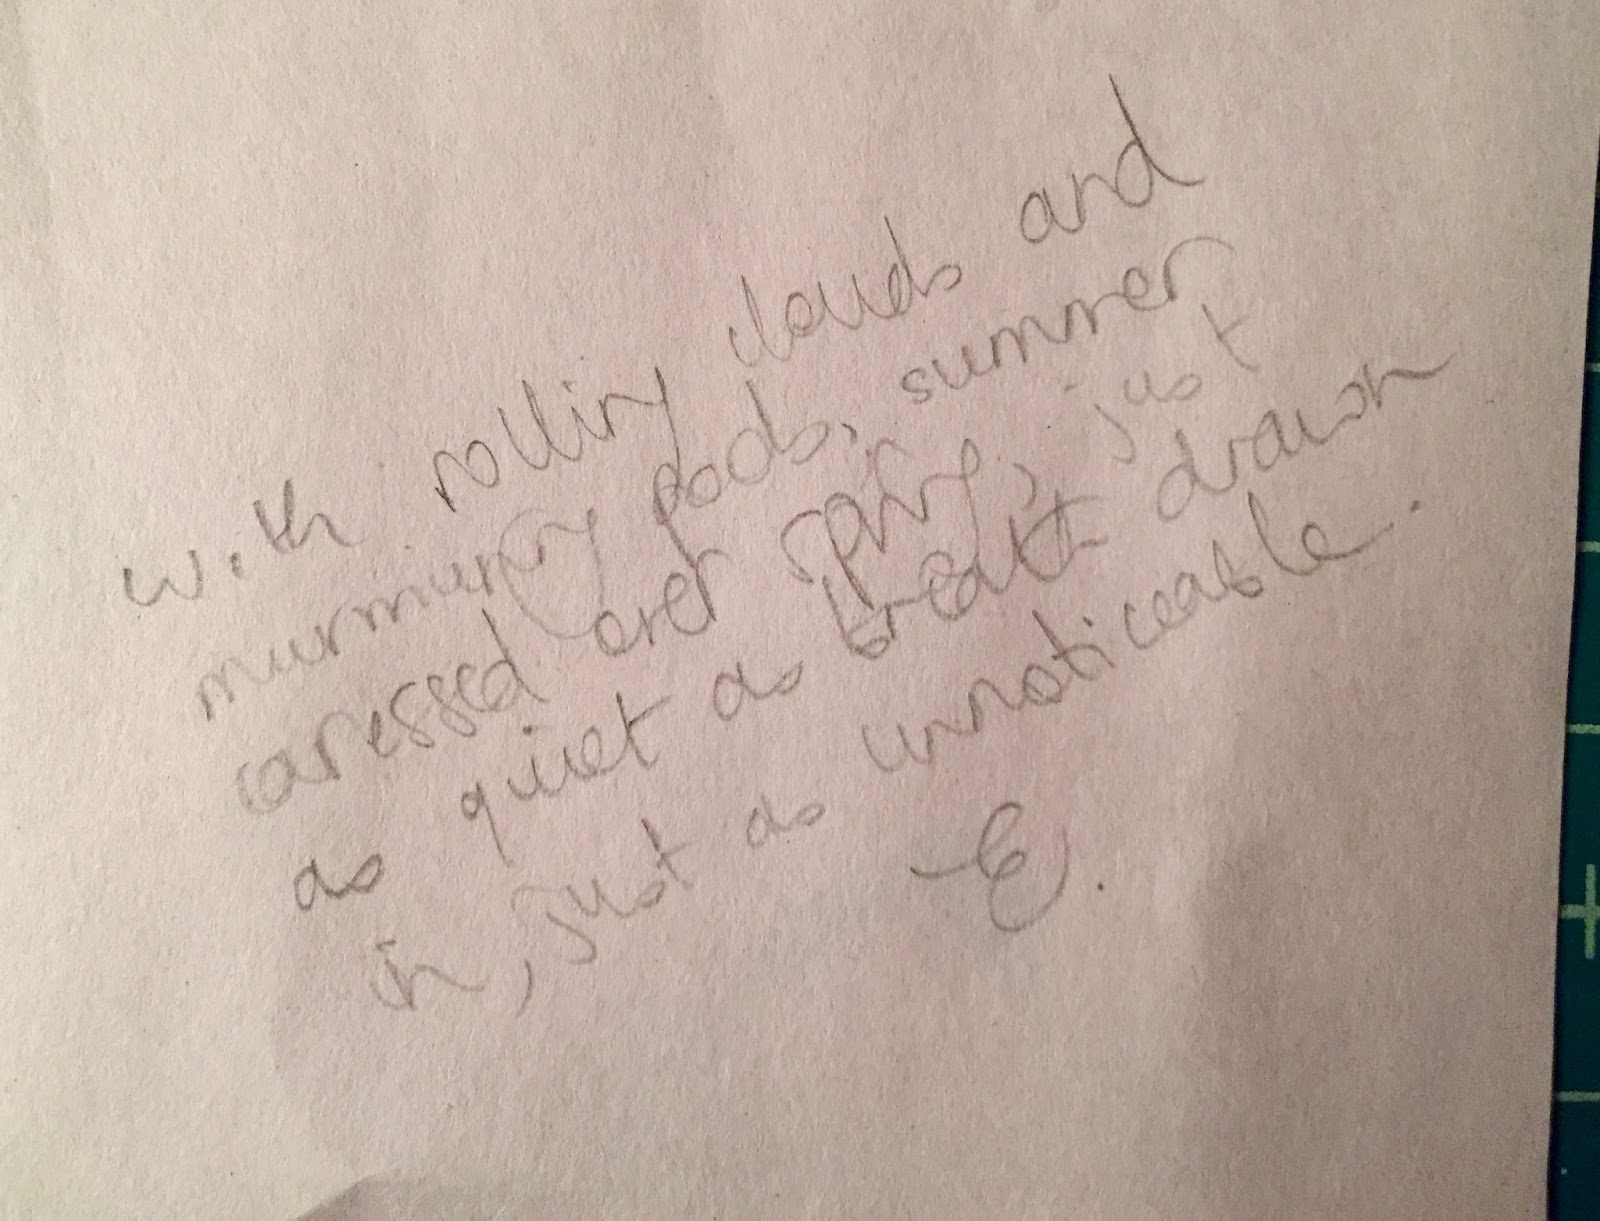 with rolling clouds and
murmuring pods, summer
caressed over spring, just
as quiet as breath drawn
in, just as unnoticeable.
- E.